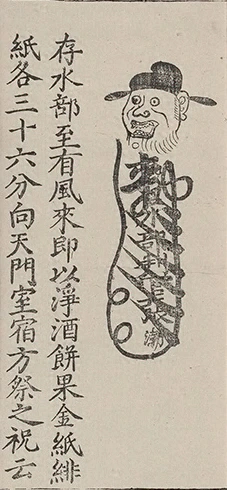 水部判官張
存水部至有風來即以淨酒餅果金紙緋
紙各三十六分向天門室宿方祭之祝云